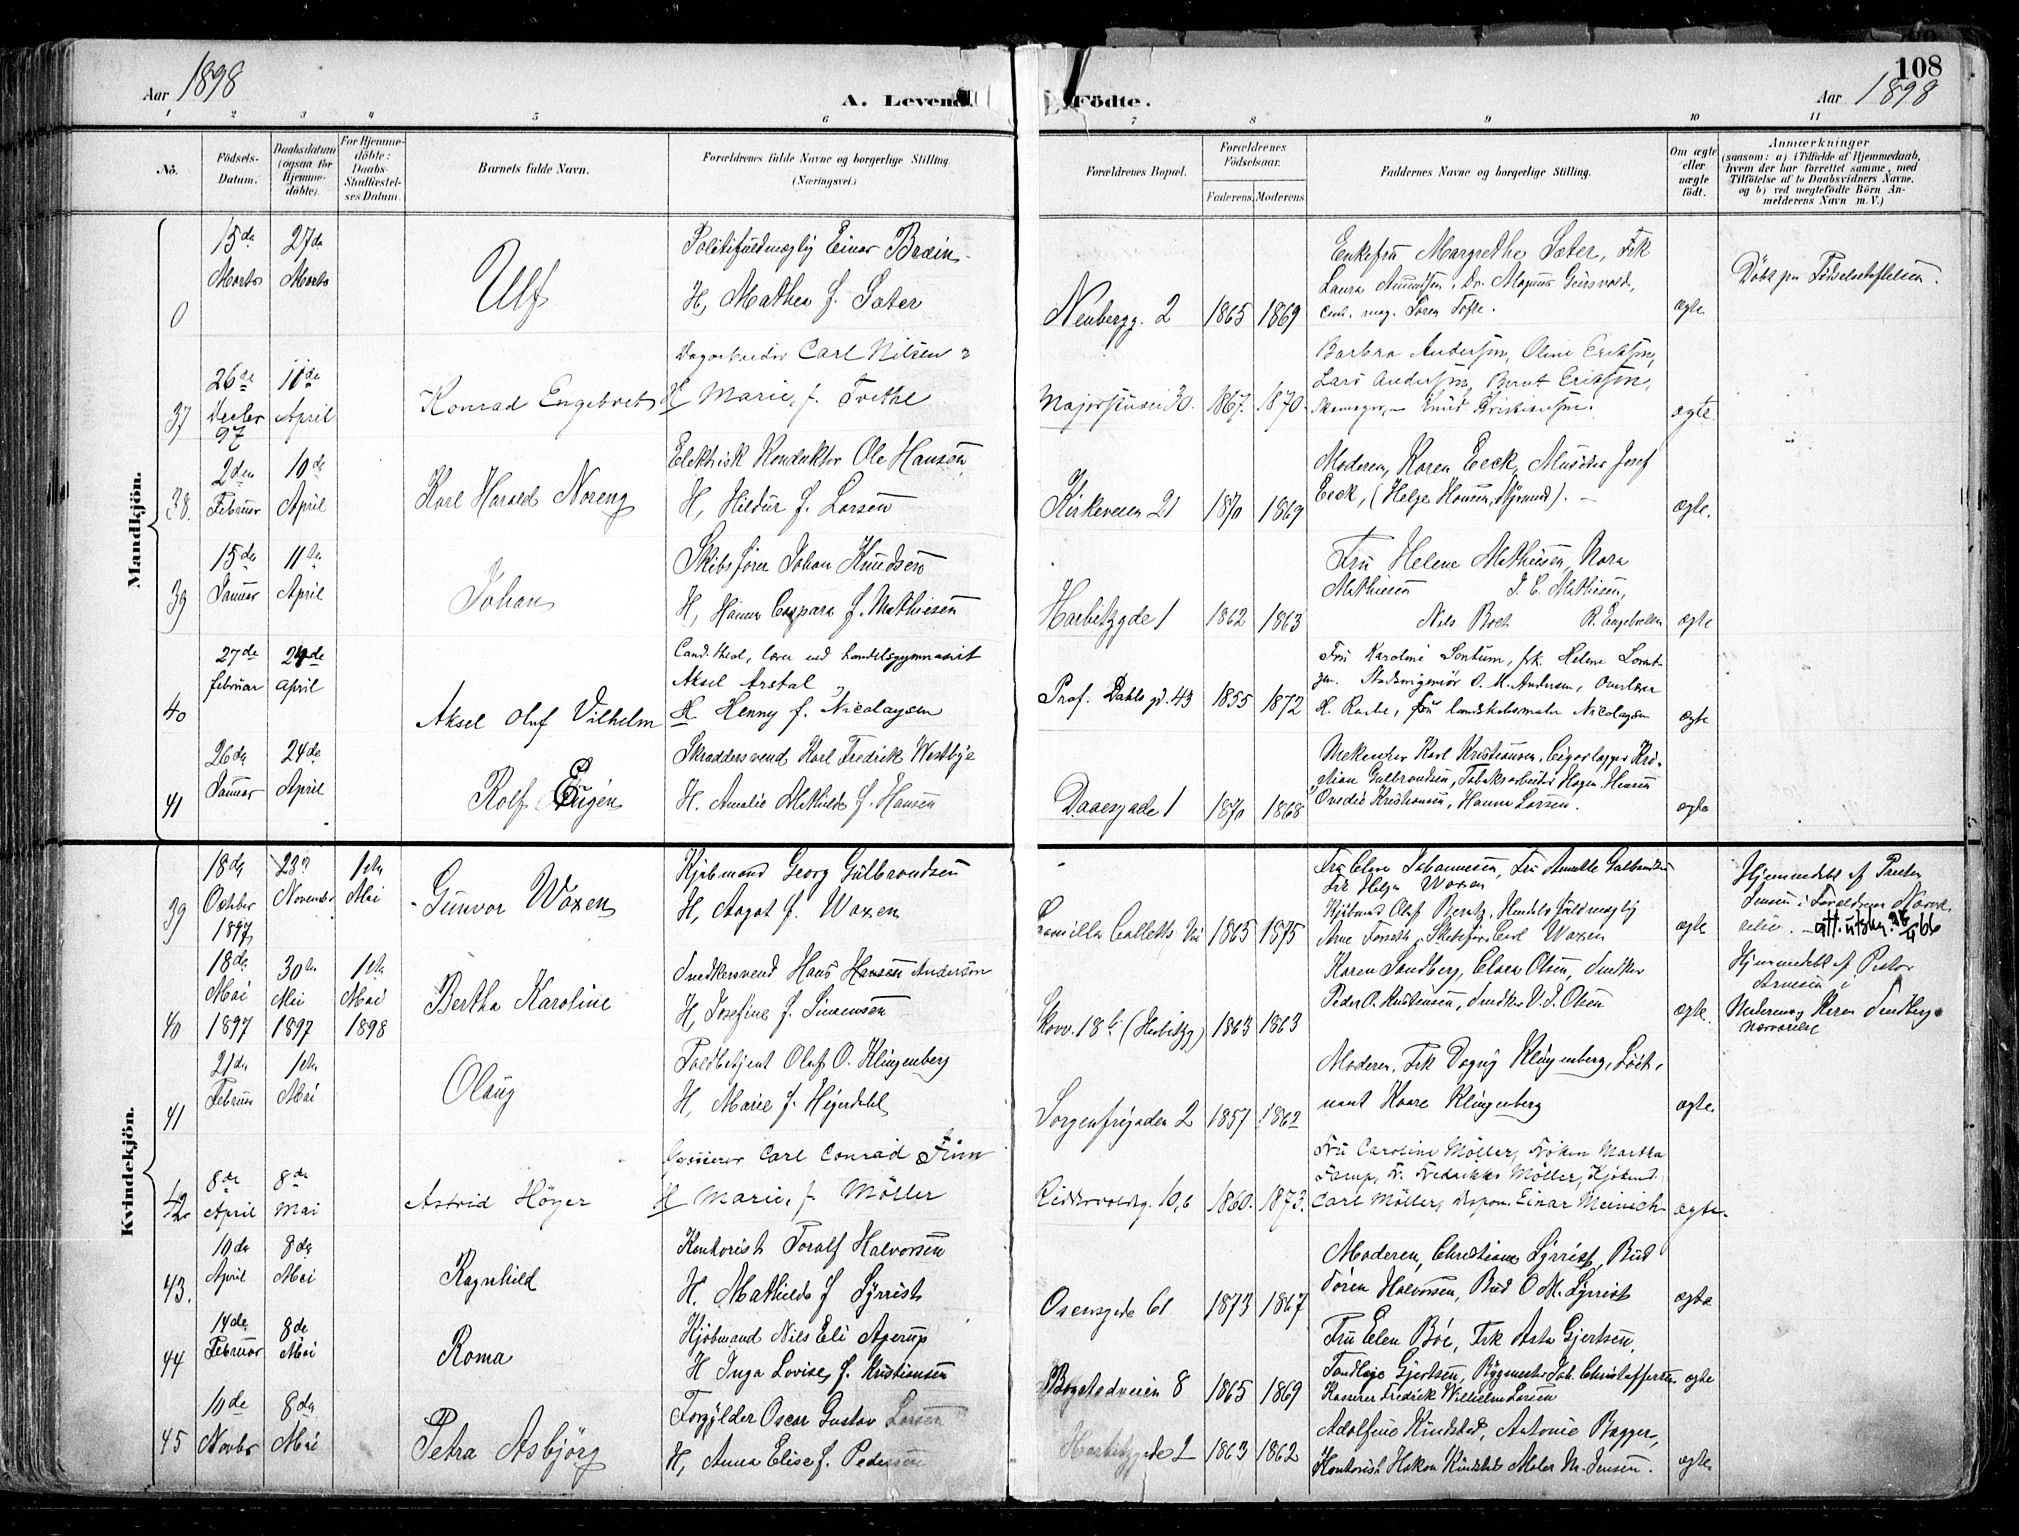 Aar 1898
A. Levende
Födte.
108
Aar 1898
1 2 3 4 5 6 7 8 9 10 11
No.
Födsels-
Datum.
Daabsdatum
(ogsaa for
Hjemme-
döbte).
For Hjemme-
döbte:
Daabs-
Stadfæstel-
ses Datum.
Barnets fulde Navn.
Forældrenes fulde Navne og borgerlige Stilling.
(Næringsvei.)
Forældrenes Bopæl.
Forældrenes
Födselsaar.
Faderens. Moderens.
Faddernes Navne og borgerlige Stilling.
Om ægte
eller
uægte
födt.
Anmærkninger
(saasom: a) i Tilfælde af Hjemmedaab,
hvem der har forrettet samme, med
Tilföielse af to Daabsvidners Navne,
og b) ved uægtefödte Börn An-
melderens Navn m. V.)
Mandkjön.
0
15de Marts
27de Marts
Ulf
Politifuldmægtig Einar Bræin
H, Mathea f. Sæter
Neubergg. 2
1865 1869
Enkefru Margrethe Sæter, Frk
Laura Amundsen, Dr. Magnus
Cand. mag. Sören Tofte.
ægte
Döbt paa Födselsstiftelsen.
37
26de Decbr 97
April
Konrad Engebret
Dagarbeider Carl Nilsen
H Marie, f. Trethe
Majorstuvei 30.
1867. 1870.
Barbra Andersen, Oline Eriksen,
Lars Andersen, Bernt Eriksen,
Knud Kristiansen.
ægte.
38.
2den Februar
10de April
Karl Harald Noreng
Elektrisk Konduktör Ole Hansen
H, Hildur f. Larsen
Kirkeveien 21
1870 1869
Moderen, Karen Eeck, Josef
Eeck, (Helge Hansen,
ægte.
39
15de Januar
11te April
Johan
Skibsförer Johan Knudsen
H, Hanna Caspara f. Mathiesen
Harbitzgade 1
1862 1863
Fru Helene Mathiesen, Nora
Mathiesen J. C. Mathiesen,
Nils Boch R. Engebretsen
ægte
40
27de februar
24de april
Aksel Oluf Vilhelm
Cand. theol, lærer ved handelsgymnasiet
Aksel Arstal
H Henny f. Nicolaysen
Prof. Dahls gd. 43
1855 1872
Fru Karoline Sontum, frk. Helene Lorent-
zen. Stadsingeniör O. M. Andersen, Overlærer
H. fru landskabsmaler Nicolaysen
ægte
41
26de Januar
24de April
Rolf Eugen
Skræddersvend Karl Fredrik Westbye
H. Amalie Mathilde f. Hansen
Daaesgade 1
1870 1868
Karl Kristiansen, Kri-
stian Gulbrandsen, Tobaksarbeider Hagen Hansen
Ovedie Kristiansen, Hanna Larsen.
ægte
Kvindekjön.
39
18de Oktober 1897
23de November
1ste Mai
Gunvor Waxen
Kjöbmand Georg Gulbrandsen
H, Aagot f. Waxen
Camilla Colletts Vei
1865 1875
Fru Clara Johannesen, Fru Amalie Gulbrandsen
Frk Helga Waxen
Kjöbmand Olaf Handelsfuldmægtig
Arne Forseth, Skibsförer Carl Waxen
ægte
Hjemmedöbt af Presten
Jensen i Forældrenes Nærvæ-
relse. – att. utskr.
40
18de Mai 1897
30te Mai 1897
1ste Mai 1898
Bertha Karoline
Snedkersvend Hans Hansen Anderson
H, Josefine f. Simensen
Skovv. 18 b (Harbitzg)
1863 1863
Karen Sandberg, Clara Olsen, Snedker
Peder O. Kristensen, Snedker V. J. Olsen
ægte.
Hjemmedöbt af Pastor
Arnesen i
Moderens og Karen Sandbergs
nærværelse
41
21de Februar
1ste Mai
Olaug
Toldbetjent Oluf O. Klingenberg
H, Marie f. Heyerdahl
Sorgenfrigaden 2
1857 1862
Moderen, Frk Dagny Klingenberg, Löit-
nant Kaare Klingenberg
ægte.
42
8de April
8de Mai
Astrid Höyer
Carl Conrad Finn
H Marie, f. Möller
Riddervoldsg. 10,b
1860. 1873.
Fru Caroline Möller, Fröken Martha
Fr. Fredrikke Möller, Kjöbmd.
Carl Möller, Dispon. Einar Meinich
ægte.
43.
10de April
8de Mai
Ragnhild
Kontorist Toralf Halvorsen
H. Mathilde f. Syrrist
Oscarsgade 61
1873 1867
Moderen, Christiane Syrrist, Bud
Sören Halvorsen, Bud O. M. Syrrist
ægte
44
14de Februar
8de Mai
Roma
Kjöbmand Nils Eli Aperup
H Inga Lovise, f. Kristiansen
Bogstadveien 8
1865 1869
Fru Elen Böe, Frk Asta Gjertsen,
Tandlæge Gjertsen, Bygmester Joh. Christoffersen
Kasserer Fredrik Wilhelm Larsen
ægte
45
10de Novbr
8de Mai
Petra Asbjörg
Forgylder Oscar Gustav Larsen
H, Anna Elise f. Pedersen
Harbitzgade 2
1863 1862
Adolfine Kindstad, Antonie Bagger,
Kontorist Hakon Kindstad Maler M. Jensen.
ægte